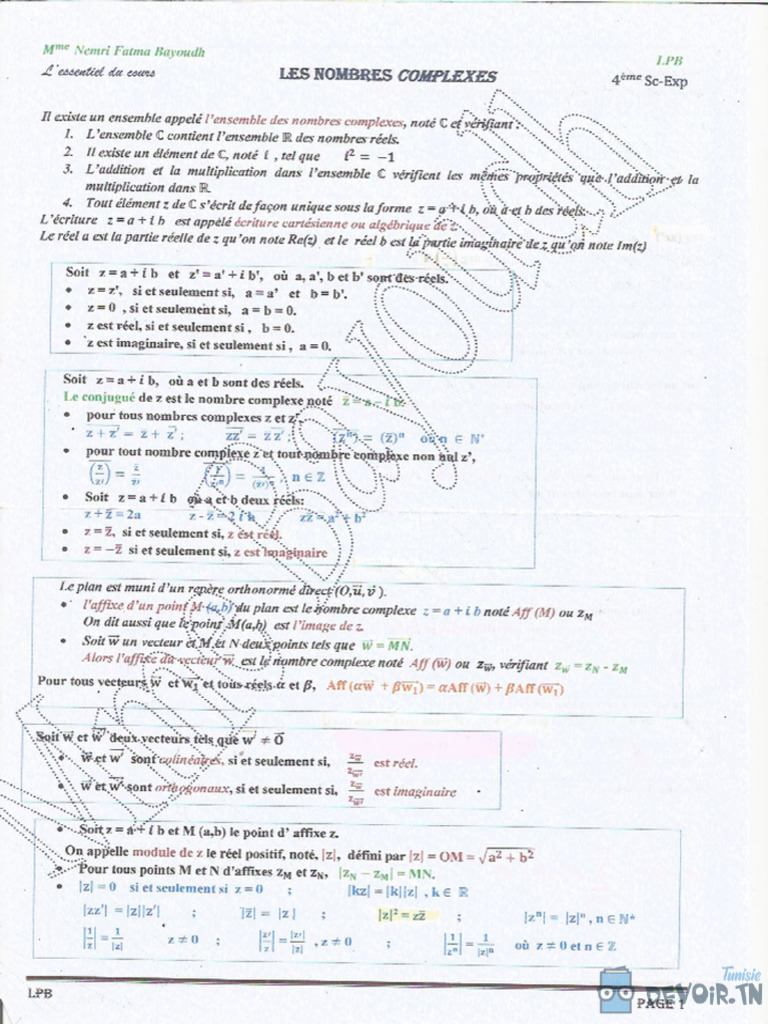 Mme Nemri Fatma Bayoudh
LPB
L'essentiel du cours
LES NOMBRES COMPLEXES
4ème Sc-Exp
Il existe un ensemble appelé l'ensemble des nombres complexes, noté ℂ et vérifiant :
1. L'ensemble ℂ contient l'ensemble ℝ des nombres réels.
2. Il existe un élément de ℂ, noté i , tel que i² = −1
3. L'addition et la multiplication dans l'ensemble ℂ vérifient les mêmes propriétés que l'addition et la
multiplication dans ℝ
4. Tout élément z de ℂ s'écrit de façon unique sous la forme z = a + i b, où a et b des réels.
L'écriture z = a + i b est appelé écriture cartésienne ou algébrique de z.
Le réel a est la partie réelle de z qu'on note Re(z) et le réel b est la partie imaginaire de z qu'on note Im(z)
Soit z = a + i b et z' = a' + i b', où a, a', b et b' sont des réels.
• z = z', si et seulement si, a = a' et b = b'.
• z = 0 , si et seulement si, a = b = 0.
• z est réel, si et seulement si , b = 0.
• z est imaginaire, si et seulement si , a = 0.
Soit z = a + i b, où a et b sont des réels.
Le conjugué de z est le nombre complexe noté z̅ = a – i b.
• pour tous nombres complexes z et z'.
\overline{z + z'} = z̅ + \overline{z'} ; \overline{zz'} = z̅ \overline{z'} ; \overline{(zⁿ)} = (z̅)ⁿ où n ∈ ℕ*
• pour tout nombre complexe z et tout nombre complexe non nul z',
n ∈ ℤ
• Soit z = a + i b où a et b deux réels:
z + z̅ = 2a z - z̅ = 2 i b zz̅ = a² + b²
• z = z̅, si et seulement si, z est réel.
• z = −z̅ si et seulement si, z est imaginaire
Le plan est muni d'un repère orthonormé direct (O,u⃗, v⃗ ).
• l'affixe d'un point M (a,b) du plan est le nombre complexe z = a + i b noté Aff (M) ou z_M
On dit aussi que le point M(a,b) est l'image de z.
• Soit w⃗ un vecteur et M et N deux points tels que w⃗ = \overrightarrow{MN}.
Alors l'affixe du vecteur w⃗ est le nombre complexe noté Aff (w⃗) ou z_w⃗, vérifiant z_w⃗ = z_N - z_M
Pour tous vecteurs w⃗ et w⃗₁ et tous réels α et β, Aff (αw⃗ + βw⃗₁) = αAff (w⃗) + βAff (w⃗₁)
Soit w⃗ et w⃗' deux vecteurs tels que w⃗' ≠ 0⃗
• w⃗ et w⃗' sont colinéaires, si et seulement si, z_w⃗/z_w⃗' est réel.
• w⃗ et w⃗' sont orthogonaux, si et seulement si, z_w⃗/z_w⃗' est imaginaire
• Soit z = a + i b et M (a,b) le point d' affixe z.
On appelle module de z le réel positif, noté, |z|, défini par |z| = OM = √(a² + b²)
• Pour tous points M et N d'affixes z_M et z_N, |z_N − z_M| = MN.
• |z| = 0 si et seulement si z = 0 ; |kz| = |k||z| , k ∈ ℝ
|zz'| = |z||z'| ; |z̅| = |z| ; |z|² = zz̅ ; |zⁿ| = |z|ⁿ , n ∈ ℕ*
|1/z| = 1/|z| z ≠ 0 ; |z'/z| = |z'|/|z| , z ≠ 0 ; |1/zⁿ| = 1/|z|ⁿ où z ≠ 0 et n ∈ ℤ
LPB
PAGE 1
Tunisie
DEVOIR.TN
Mme Bayoudh